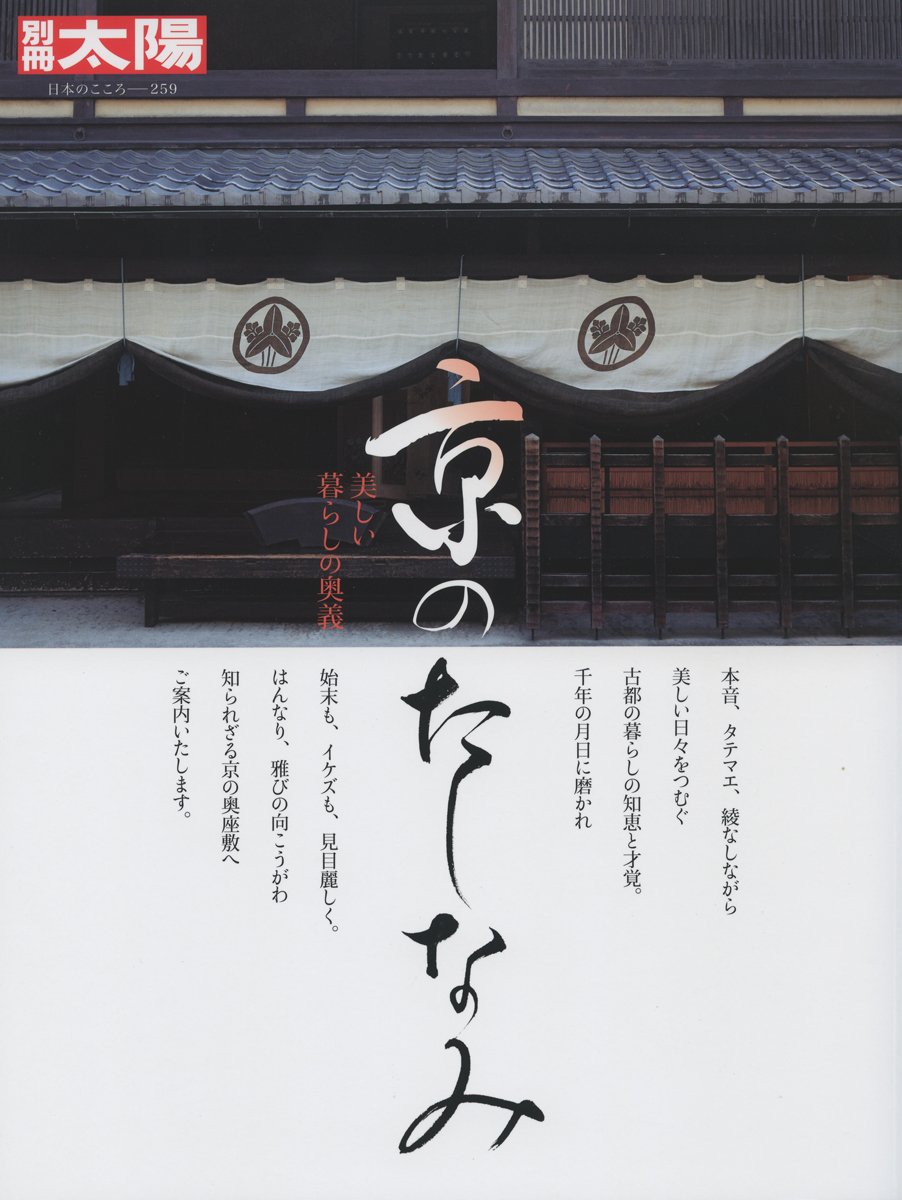 別冊
太陽
日本のこころ──259
京のたしなみ
美しい
暮らしの奥義
本音、タテマエ、綾なしながら
美しい日々をつむぐ
古都の暮らしの知恵と才覚。
千年の月日に磨かれ
始末も、イケズも、見目麗しく。
はんなり、雅びの向こうがわ
知られざる京の奥座敷へ
ご案内いたします。